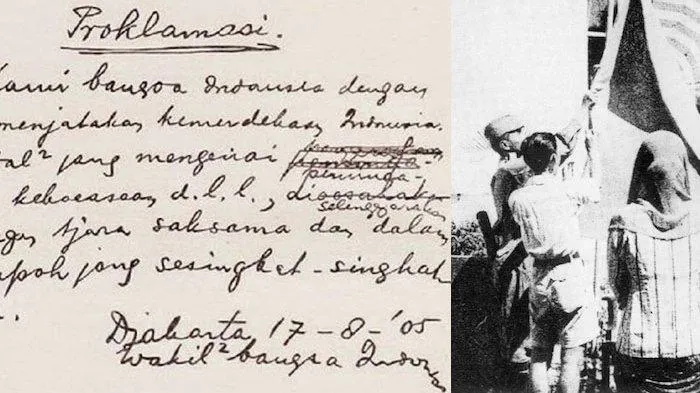 Proklamasi.
Kami bangsa Indonesia dengan
menjatakan kemerdekaan Indonesia.
al² jang mengenai
keekoeasaan d.l.l.,
selenggarakan
gan tjara saksama dan dalam
mpoh jang sesingkat-singkat
Djakarta 17 - 8 - '05
Wakil² bangsa Indones